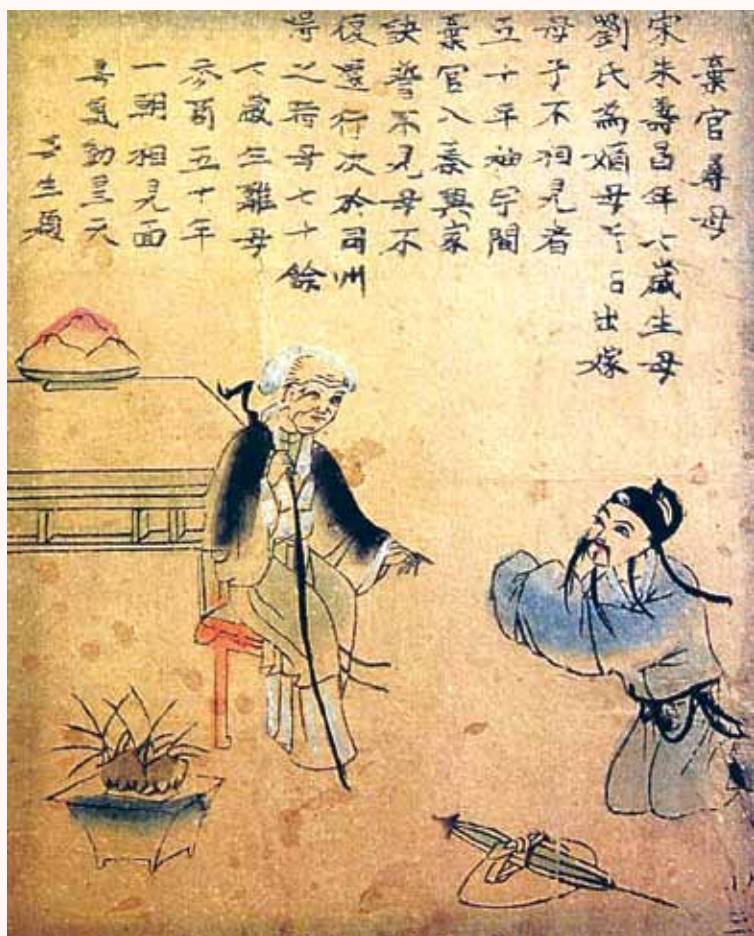 棄官尋母
宋朱壽昌年七歲生母
劉氏為嫡母出嫁
母子不相見者
五十年神宗間
棄官入秦與家
訣誓不見母不
復還行次於同州
得之時母七十餘
七歲生離母
參商五十年
一朝相見面
喜氣動皇天
生題